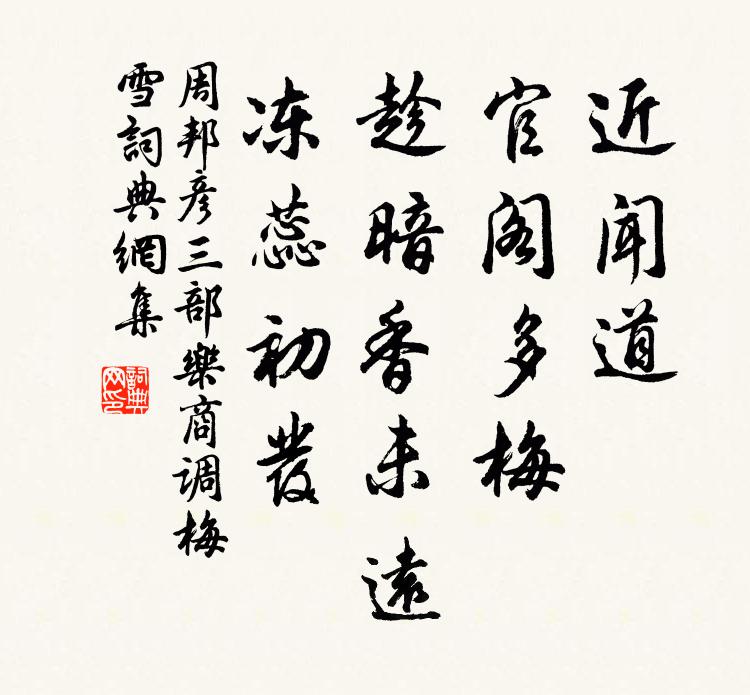 近闻道
官阁多梅
趁暗香未遠
冻蕊初發
周邦彦三部樂商调梅
雪詞典網集
詞典
网印